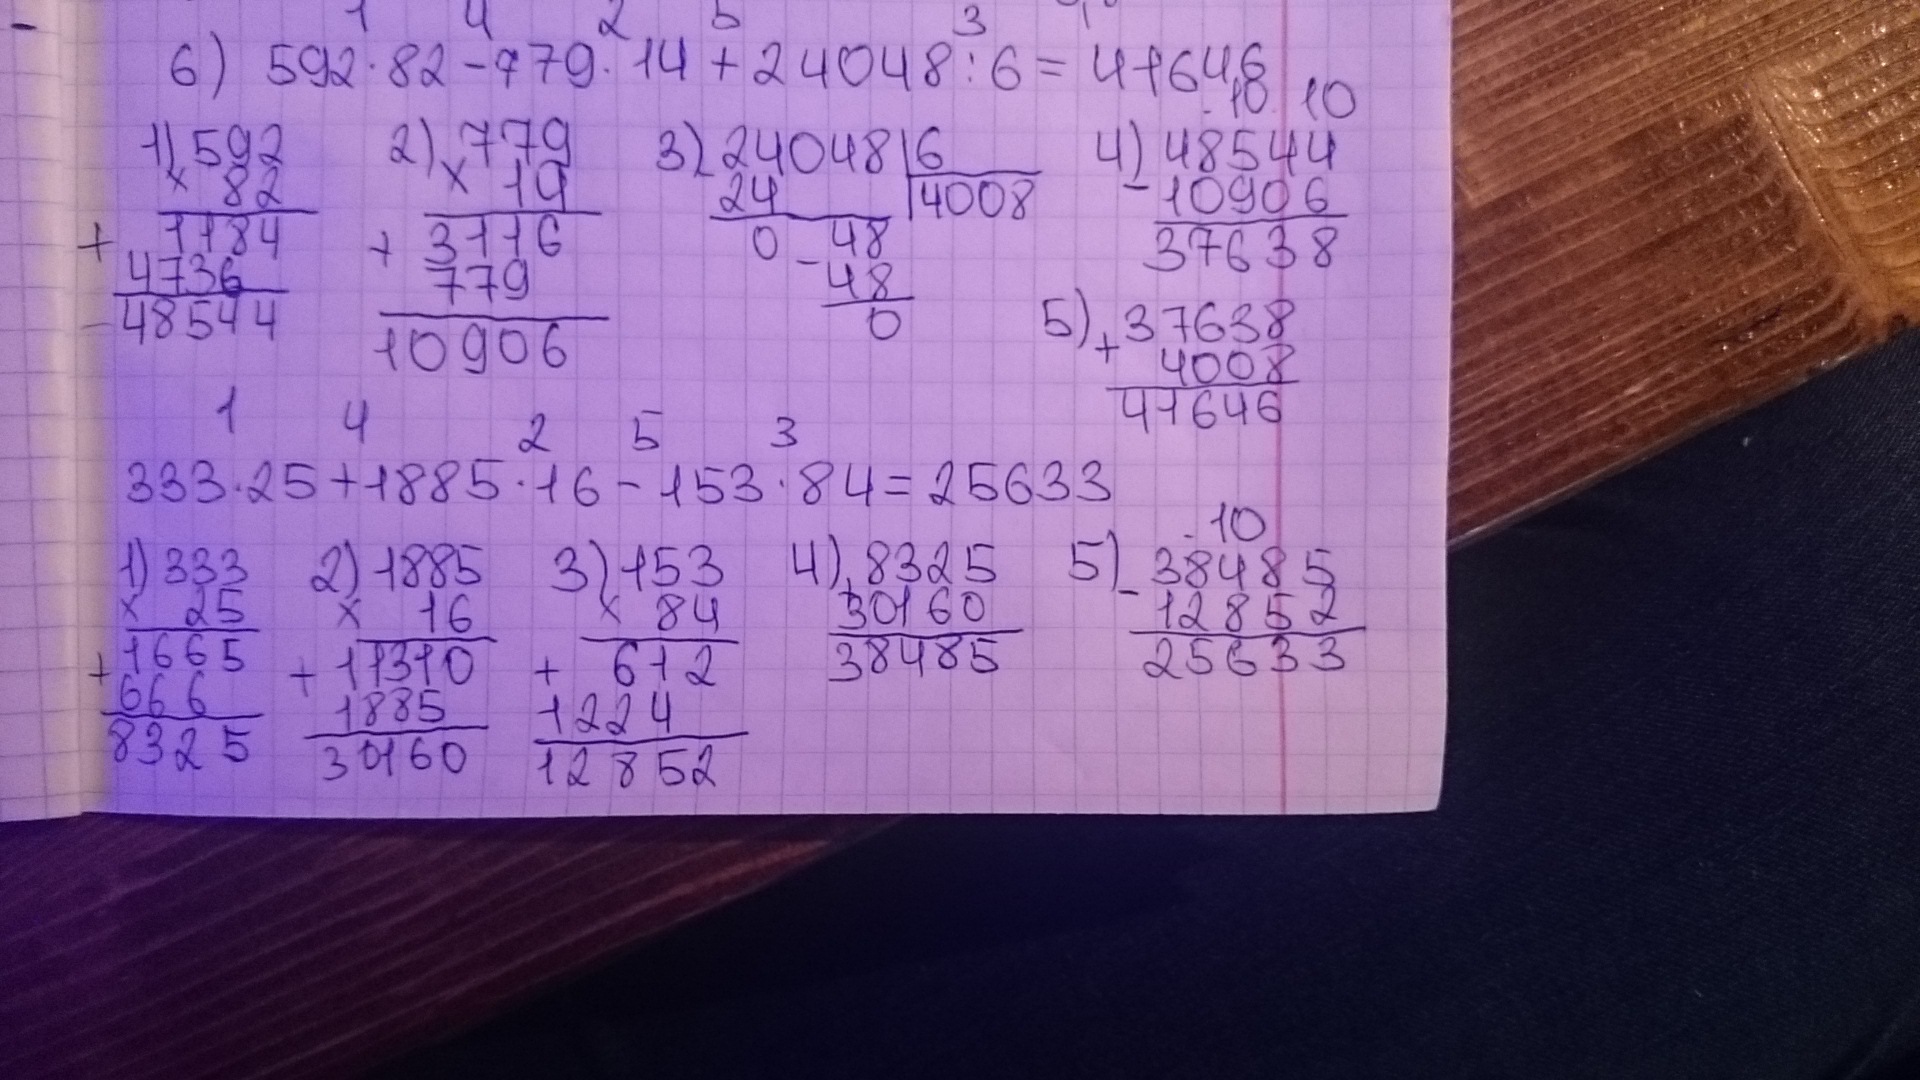 1 4 2 5 3
6) 592·82-779·14+24048:6=41646
10 10
1) 592 2) 779 3) 24048 6 4) 48544
× 82 × 19 24 4008 - 10906
+ 1184 + 3116 0 - 48 37638
4736 779 48 5) + 37638
48544 10906 0 4008
41646
1 4 2 5 3
333·25+1885·16-153·84=25633
10
1) 333 2) 1885 3) 153 4) + 8325 5) - 38485
× 25 × 16 × 84 30160 12852
+ 1665 + 11310 + 612 38485 25633
666 1885 1224
8325 30160 12852